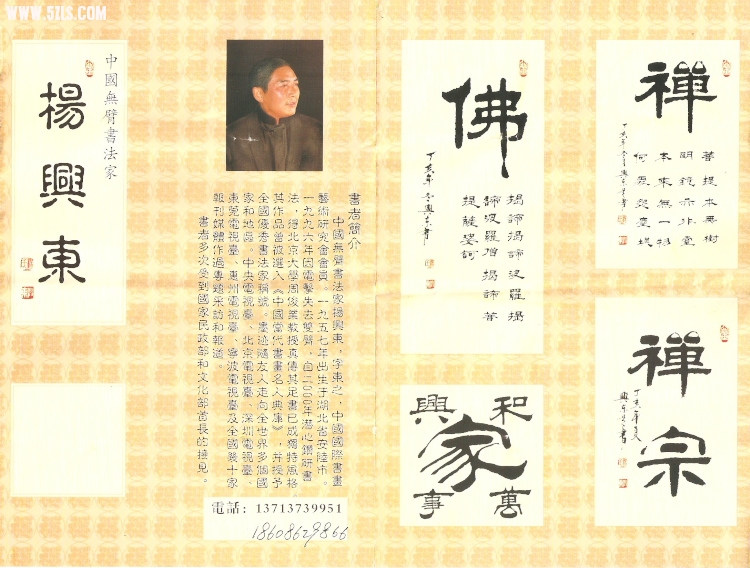 WWW.51IS.COM
中國無臂書法家
楊興東
書者簡介
中國無臂書法家楊興東,字東之,中國國際書畫
藝術研究會會員。一九五七年出生于湖北省安陸市。
一九九六年因電擊失去雙臂,自二000年潛心鑽研書
法,得北京大學周俊業教授真傳其足書已成獨特風格
其作品曾被選入《中國當代書畫名人典庫》,并授予
全國優秀書法家稱號。墨迹隨友人走向全世界多個國
家和地區。中央電視臺、北京電視臺、深圳電視臺、
東莞電視臺、惠州電視臺、寧波電視臺及全國幾十家
報刊媒體作過專題采訪和報道。
書者多次受到國家民政部和文化部首長的接見。
電話: 13713739951
18608629866
佛
揭諦揭諦波羅揭
諦波羅僧揭諦菩
提薩婆訶
丁亥年冬興東書
禪
菩提本無樹
明鏡亦非臺
本來無一物
何處惹塵埃
丁亥年冬興東書
家和萬事興
禪宗
丁亥年
興東書